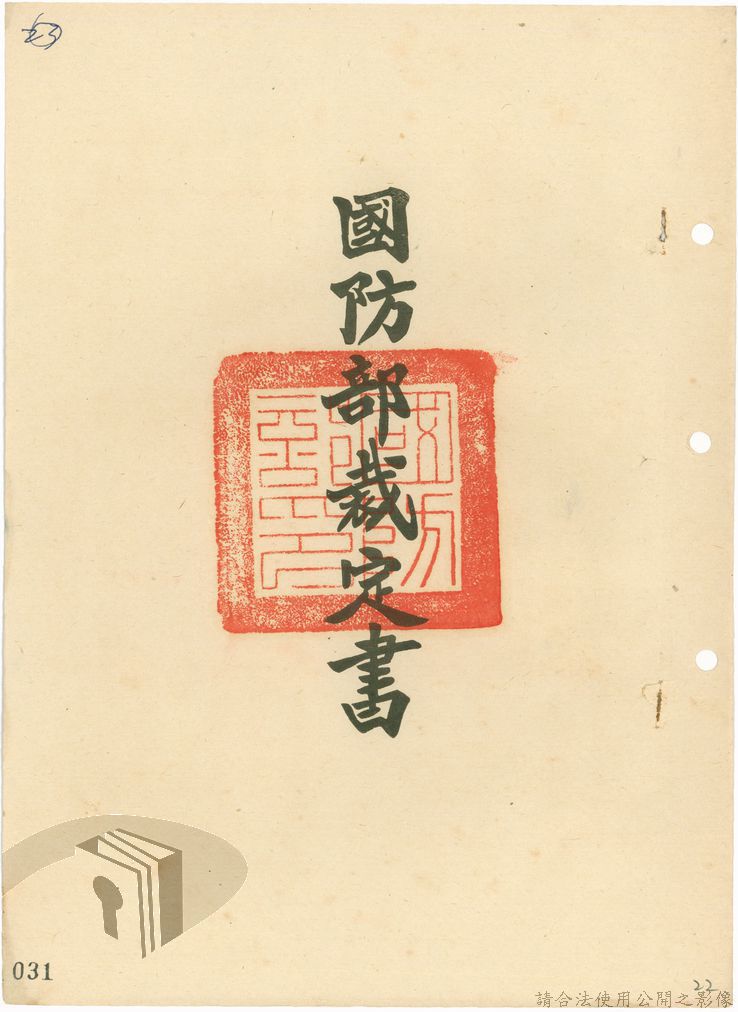 23
國防部裁定書
國防部印
031
22
請合法使用公開之影像